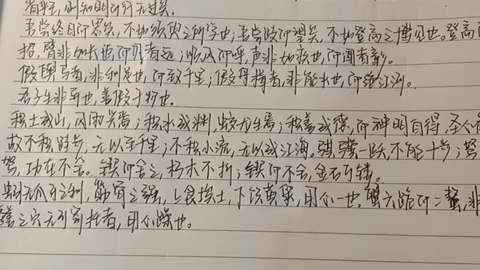 智明而行无过矣。
吾尝终日而思矣，不如须臾之所学也；吾尝跂而望矣，不如登高之博见也。登高而
招，臂非加长也，而见者远；顺风而呼，声非加疾也，而闻者彰。
假舆马者，非利足也，而致千里；假舟楫者，非能水也，而绝江河。
君子生非异也，善假于物也。
积土成山，风雨兴焉；积水成渊，蛟龙生焉；积善成德，而神明自得，圣人
故不积跬步，无以至千里；不积小流，无以成江海。骐骥一跃，不能十步；驽
驾，功在不舍。锲而舍之，朽木不折；锲而不舍，金石可镂。
蚓无爪牙之利，筋骨之强，上食埃土，下饮黄泉，用心一也。蟹六跪而二螯，非
鳝之穴无可寄托者，用心躁也。